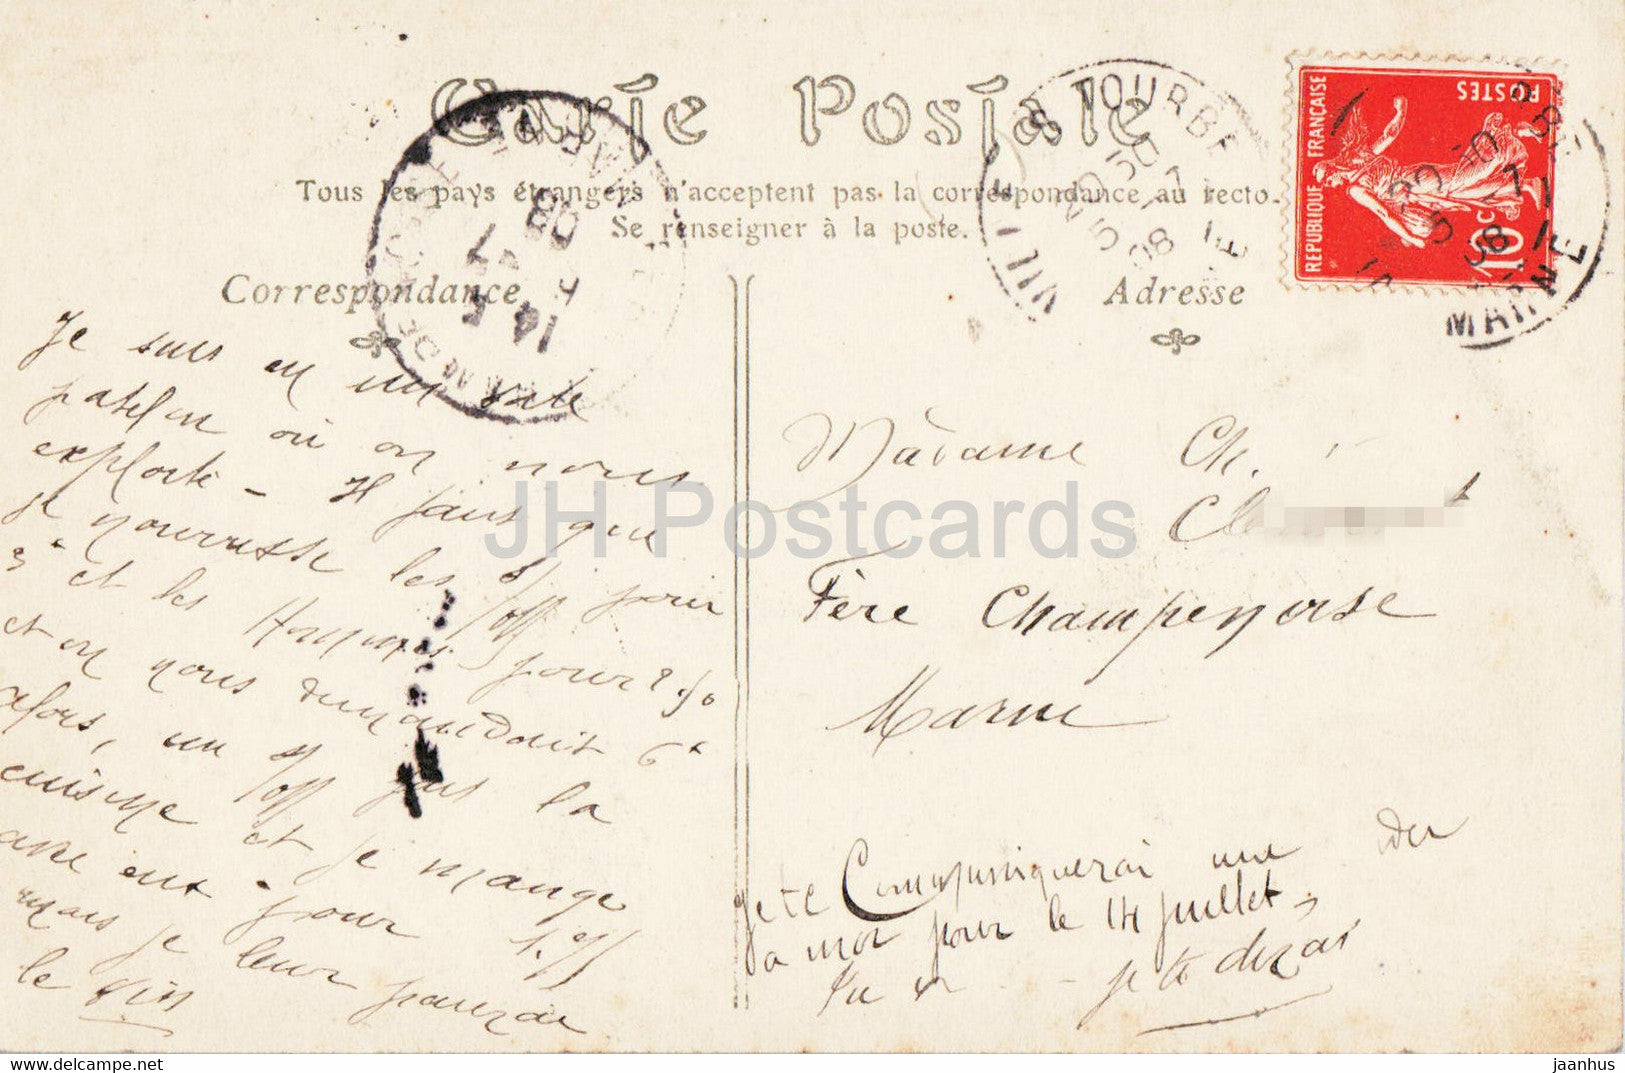 Carte Postale
Tous les pays étrangers n'acceptent pas la correspondance au recto.
Se renseigner à la poste.
Correspondance
Adresse
REPUBLIQUE FRANÇAISE
POSTES
10c
VILLE S TOURBE
5 -7
08
MARNE
Je suis en un sale
patelin où on nous
exploite - Il faut que
je nourrisse les S/off pour
3f et les Hommes pour 2.50
et on nous demandait 6f
alors, un S/off fait la
cuisine et je mange
avec eux pour 1.75
mais je leur paierai
le vin
Madame Ch.
Fère Champenoise
Marne
Je te Communiquerai une idée
à moi pour le 14 juillet,
je te dirai
JH Postcards
www.delcampe.net
jaanhus